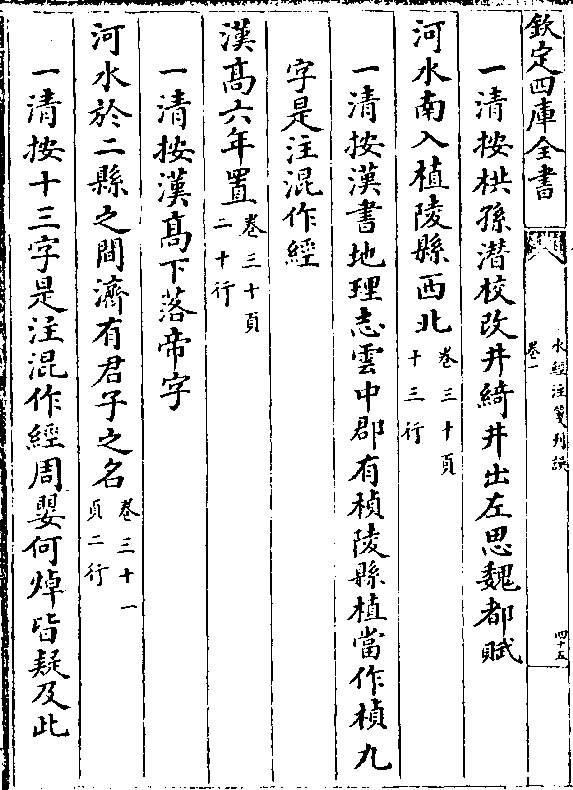 欽定四庫全書
水經注箋刊誤
卷一
四十五
一清按栱孫潜校改井綺井出左思魏都賦
河水南入植陵縣西北卷三十頁
十三行
一清按漢書地理志雲中郡有楨陵縣植當作楨九
字是注混作經
漢高六年置卷三十頁
二十行
一清按漢高下落帝字
河水於二縣之間濟有君子之名卷三十一
頁二行
一清按十三字是注混作經周嬰何焯皆疑及此